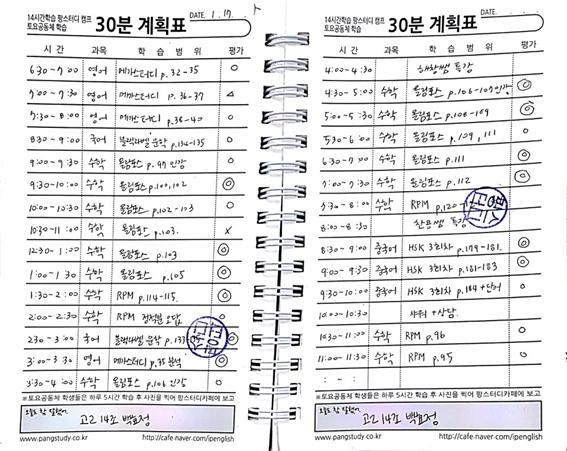 14시간학습 팡스터디 캠프
토요공동체 학습
30분 계획표
DATE. 1.17.
시간 과목 학습범위 평가
6:30-7:00 영어 메가스터디 p.32-35 ○
7:00-7:30 영어 메가스터디 p.36-37 △
7:30-8:00 영어 메가스터디 p.38-40 ○
8:30-9:00 국어 블랙라벨 문학 p.134-135 ○
9:00-9:30 수학 올림포스 p.99 인강 ○
9:30-10:00 수학 올림포스 p.100,102 ◎
10:00-10:30 수학 올림포스 p.102-103 ○
10:30-11:00 수학 올림포스 p.103. X
12:30-1:00 수학 올림포스 p.103 ◎
1:00-1:30 수학 올림포스 p.105 ◎
1:30-2:00 수학 RPM p.114-115. ◎
2:00-2:30 수학 RPM 오답 ○
2:30-3:00 국어 블랙라벨 문학 p.133
3:00-3:30 영어 메가스터디 p.35 분석 ◎
3:30-4:00 수학 올림포스 p.106 인강 ○
※토요공동체 학생들은 하루 5시간 학습 후 사진을 찍어 팡스터디카페에 보고
오늘도 참 잘했어!
고2 14조 백효정
www.pangstudy.co.kr http://cafe.naver.com/ipenglish
14시간학습 팡스터디 캠프
토요공동체 학습
30분 계획표
DATE.
시간 과목 학습범위 평가
4:00-4:30 특강
4:30-5:00 수학 올림포스 p.106-107 인강 ◎
5:00-5:30 수학 올림포스 p.108-109 ◎
5:30-6:00 수학 올림포스 p.109, 111 ○
6:30-7:00 수학 올림포스 p.111 ◎
7:00-7:30 수학 올림포스 p.112 ◎
7:30-8:00 수학 RPM p.120
8:00-8:30 특강
8:30-9:00 중국어 HSK 3회차 p.179-181. ◎
9:00-9:30 중국어 HSK 3회차 p.181-183 ◎
9:30-10:00 중국어 HSK 3회차 p.184+단어 ○
10:00-10:30 샤워+상담.
10:30-11:00 수학 RPM p.96 ○
11:00-11:30 수학 RPM p.95 ○
※토요공동체 학생들은 하루 5시간 학습 후 사진을 찍어 팡스터디카페에 보고
오늘도 참 잘했어!
고2 14조 백효정
www.pangstudy.co.kr http://cafe.naver.com/ipenglish